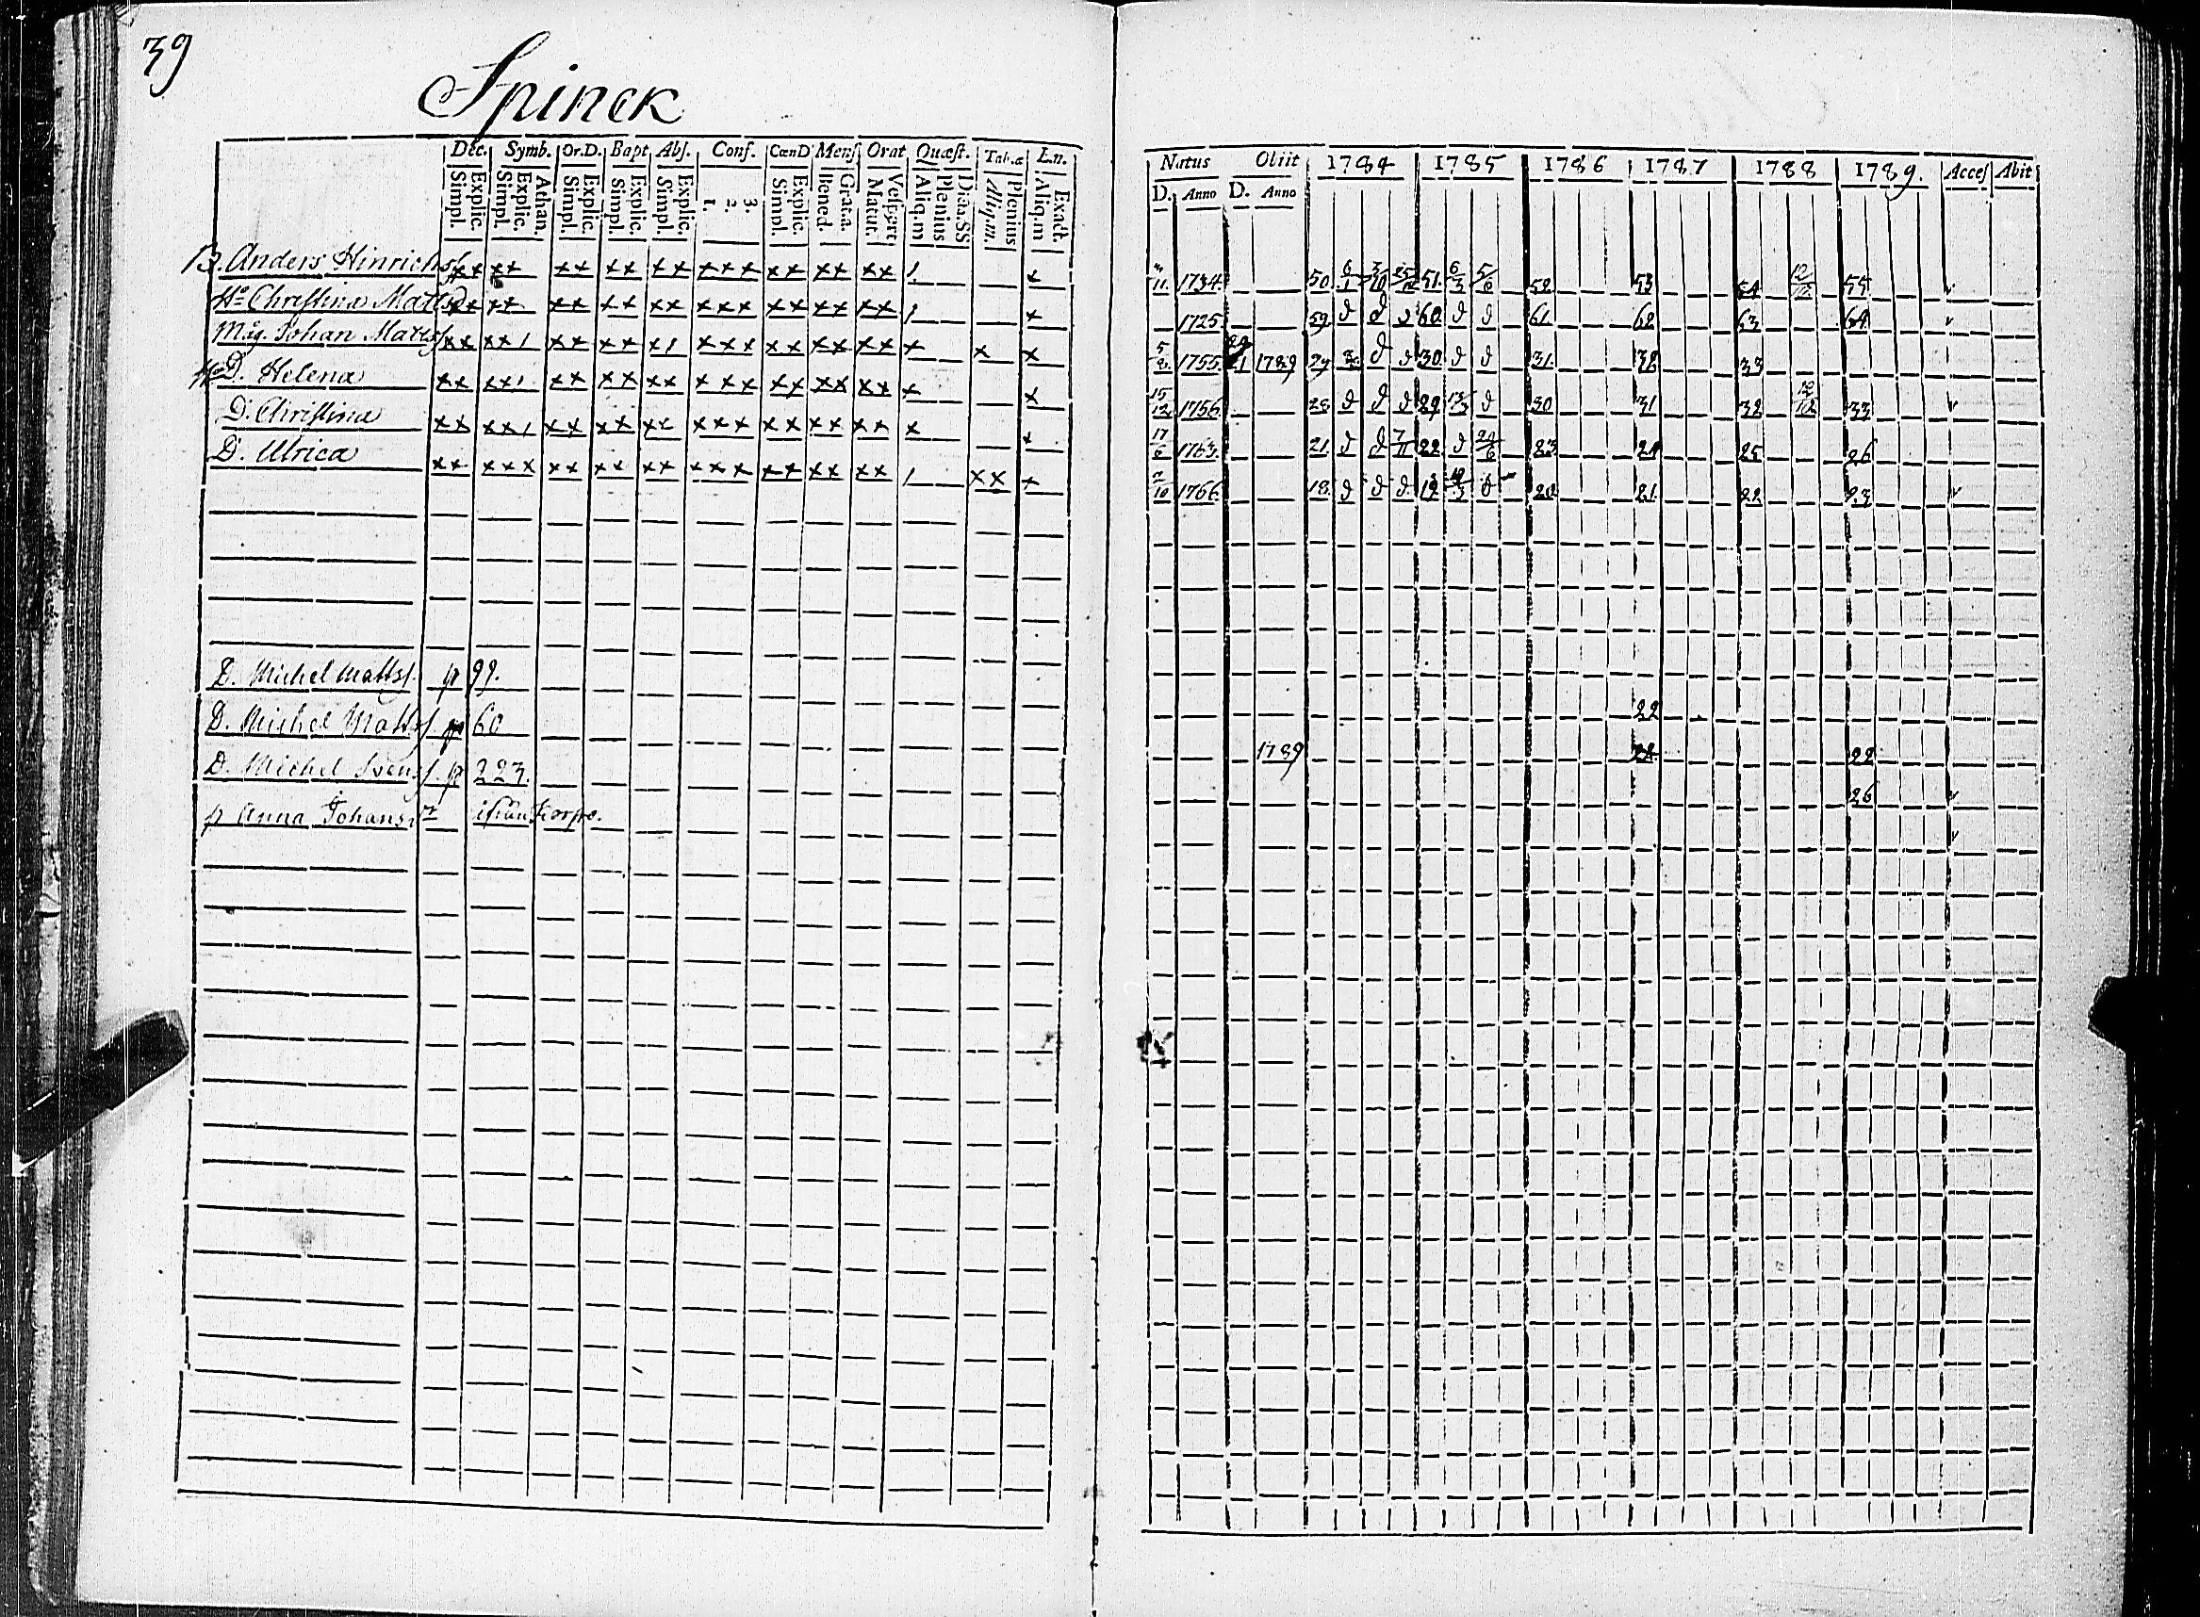 39
Spinck
Dec. Symb. Or.D. Bapt Abs. Conf. CœnD Mens Orat Quæst. Tab.æ En.
Simpl. Explic. Simpl. Explic. Athan. Simpl. Explic. Simpl. Explic. Simpl. Explic. 1. 2. 3. Simpl. Explic. Bened. Grat.a. Matut. Vespert Aliq.m Plenius Dicta.SS Aliq.m. Plenius Aliq.m Exact.
Natus Obiit 1784 1785 1786 1787 1788 1789. Acces Abit
D. Anno D. Anno
B. Anders Hinrichss xx xx xx xx xx xxx xx xx xx 1 x 11. 1734 50 51 5/6 52 53 54 55
Ho Christina Mattsd xx xx xx xx xx xxx xx xx xx 1 x 1725 59 60 61 62 63 64
Måg Johan Mattss xx xx1 xx xx x1 xxx xx xx xx x x x 1755 1789 29 30 31 32 33
D. Helena xx xx1 xx xx xx xxx xx xx xx x x 15/12 1756 28 29 30 31 32 33
D. Christina xx xx1 xx xx xx xxx xx xx xx x 17/6 1763 21 22 23 24 25 26
D. Ulrica xx xxx xx xx xx xxx xx xx xx 1 xx x 1766 18 19 20 21 22 23
D. Michel Mattss. p 99.
D. Michel Mattss. p 60 22
D. Michel Svenss. p 223. 1789 22
p Anna Johansdr ifrån Korpo. 26